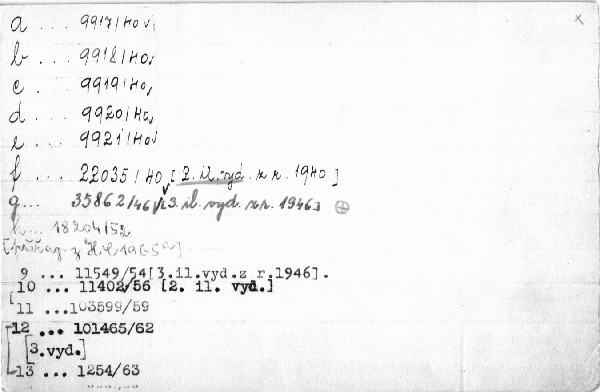 a ... 9917/40
b ... 9918/40
c ... 9919/40
d ... 9920/40
e ... 9921/40
f ... 22035/40 [2. il. vyd. z r. 1940]
g... 35862/46 [3. il. vyd. z r. 1946]
h... 18204/52
9 ... 11549/54[3.il.vyd.z r.1946].
10 ... 11402/56 [2. il. vyd.]
11 ...103599/59
12 ... 101465/62
[3.vyd.]
13 ... 1254/63